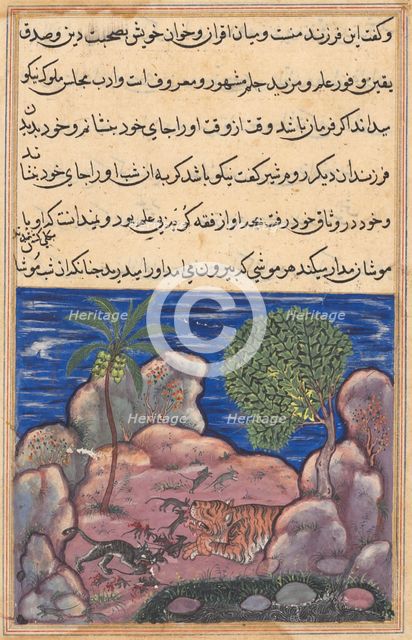 و گفت این فرزند منست و میان اقران و خوان خویش بصحبت دین و صدق
یقین و فور علم و مزید حلم مشهور و معروف است و ادب مجلس ملوک نیکو
میداند اگر فرمان باشد وقت از وقت او را بجای خود بنشانم و خود بدیدن
فرزندان دیگر روم شیر گفت نیکو باشد گربه از شب او را بجای خود بنشاند
و خود در وثاق خود رفت او از فقه گربه بی علم بود و نمیدانست که او با
موشان مدار میکند هر موشی که بیرون می امد او را میدرید چنانکه آن شب موشا
Heritage
Heritage
Heritage
Heritage
Heritage
Heritage